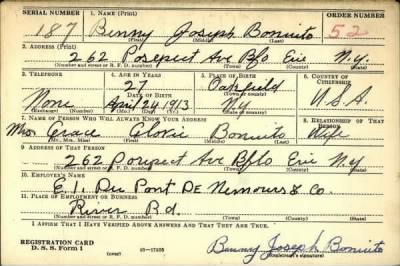 SERIAL NUMBER 1. NAME (Print) ORDER NUMBER
187 Binny Joseph Bonvito 52
(First) (Middle) (Last)
2. ADDRESS (Print)
262 Pospect Av Bflo Erie N.y.
(Number and street or R. F. D. number) (Town) (County) (State)
3. TELEPHONE 4. AGE IN YEARS 5. PLACE OF BIRTH 6. COUNTRY OF CITIZENSHIP
27 Oakfield
None April 24 1913 Ny U.S.A.
7. NAME OF PERSON WHO WILL ALWAYS KNOW YOUR ADDRESS 8. RELATIONSHIP OF THAT PERSON
Mrs Grace Bonvito Wife
(Mr., Mrs., Miss) (First) (Middle) (Last)
9. ADDRESS OF THAT PERSON
262 Pospect Av Bflo Erie N.y
(Number and street or R. F. D. number) (Town) (County) (State)
10. EMPLOYER'S NAME
E. I. Du Pont De Nemours & Co.
11. PLACE OF EMPLOYMENT OR BUSINESS
River Rd.
(Number and street or R. F. D. number) (Town) (County) (State)
I AFFIRM THAT I HAVE VERIFIED ABOVE ANSWERS AND THAT THEY ARE TRUE.
REGISTRATION CARD
D. S. S. Form 1 (over) Binny Joseph Bonvito
(Registrant's signature)